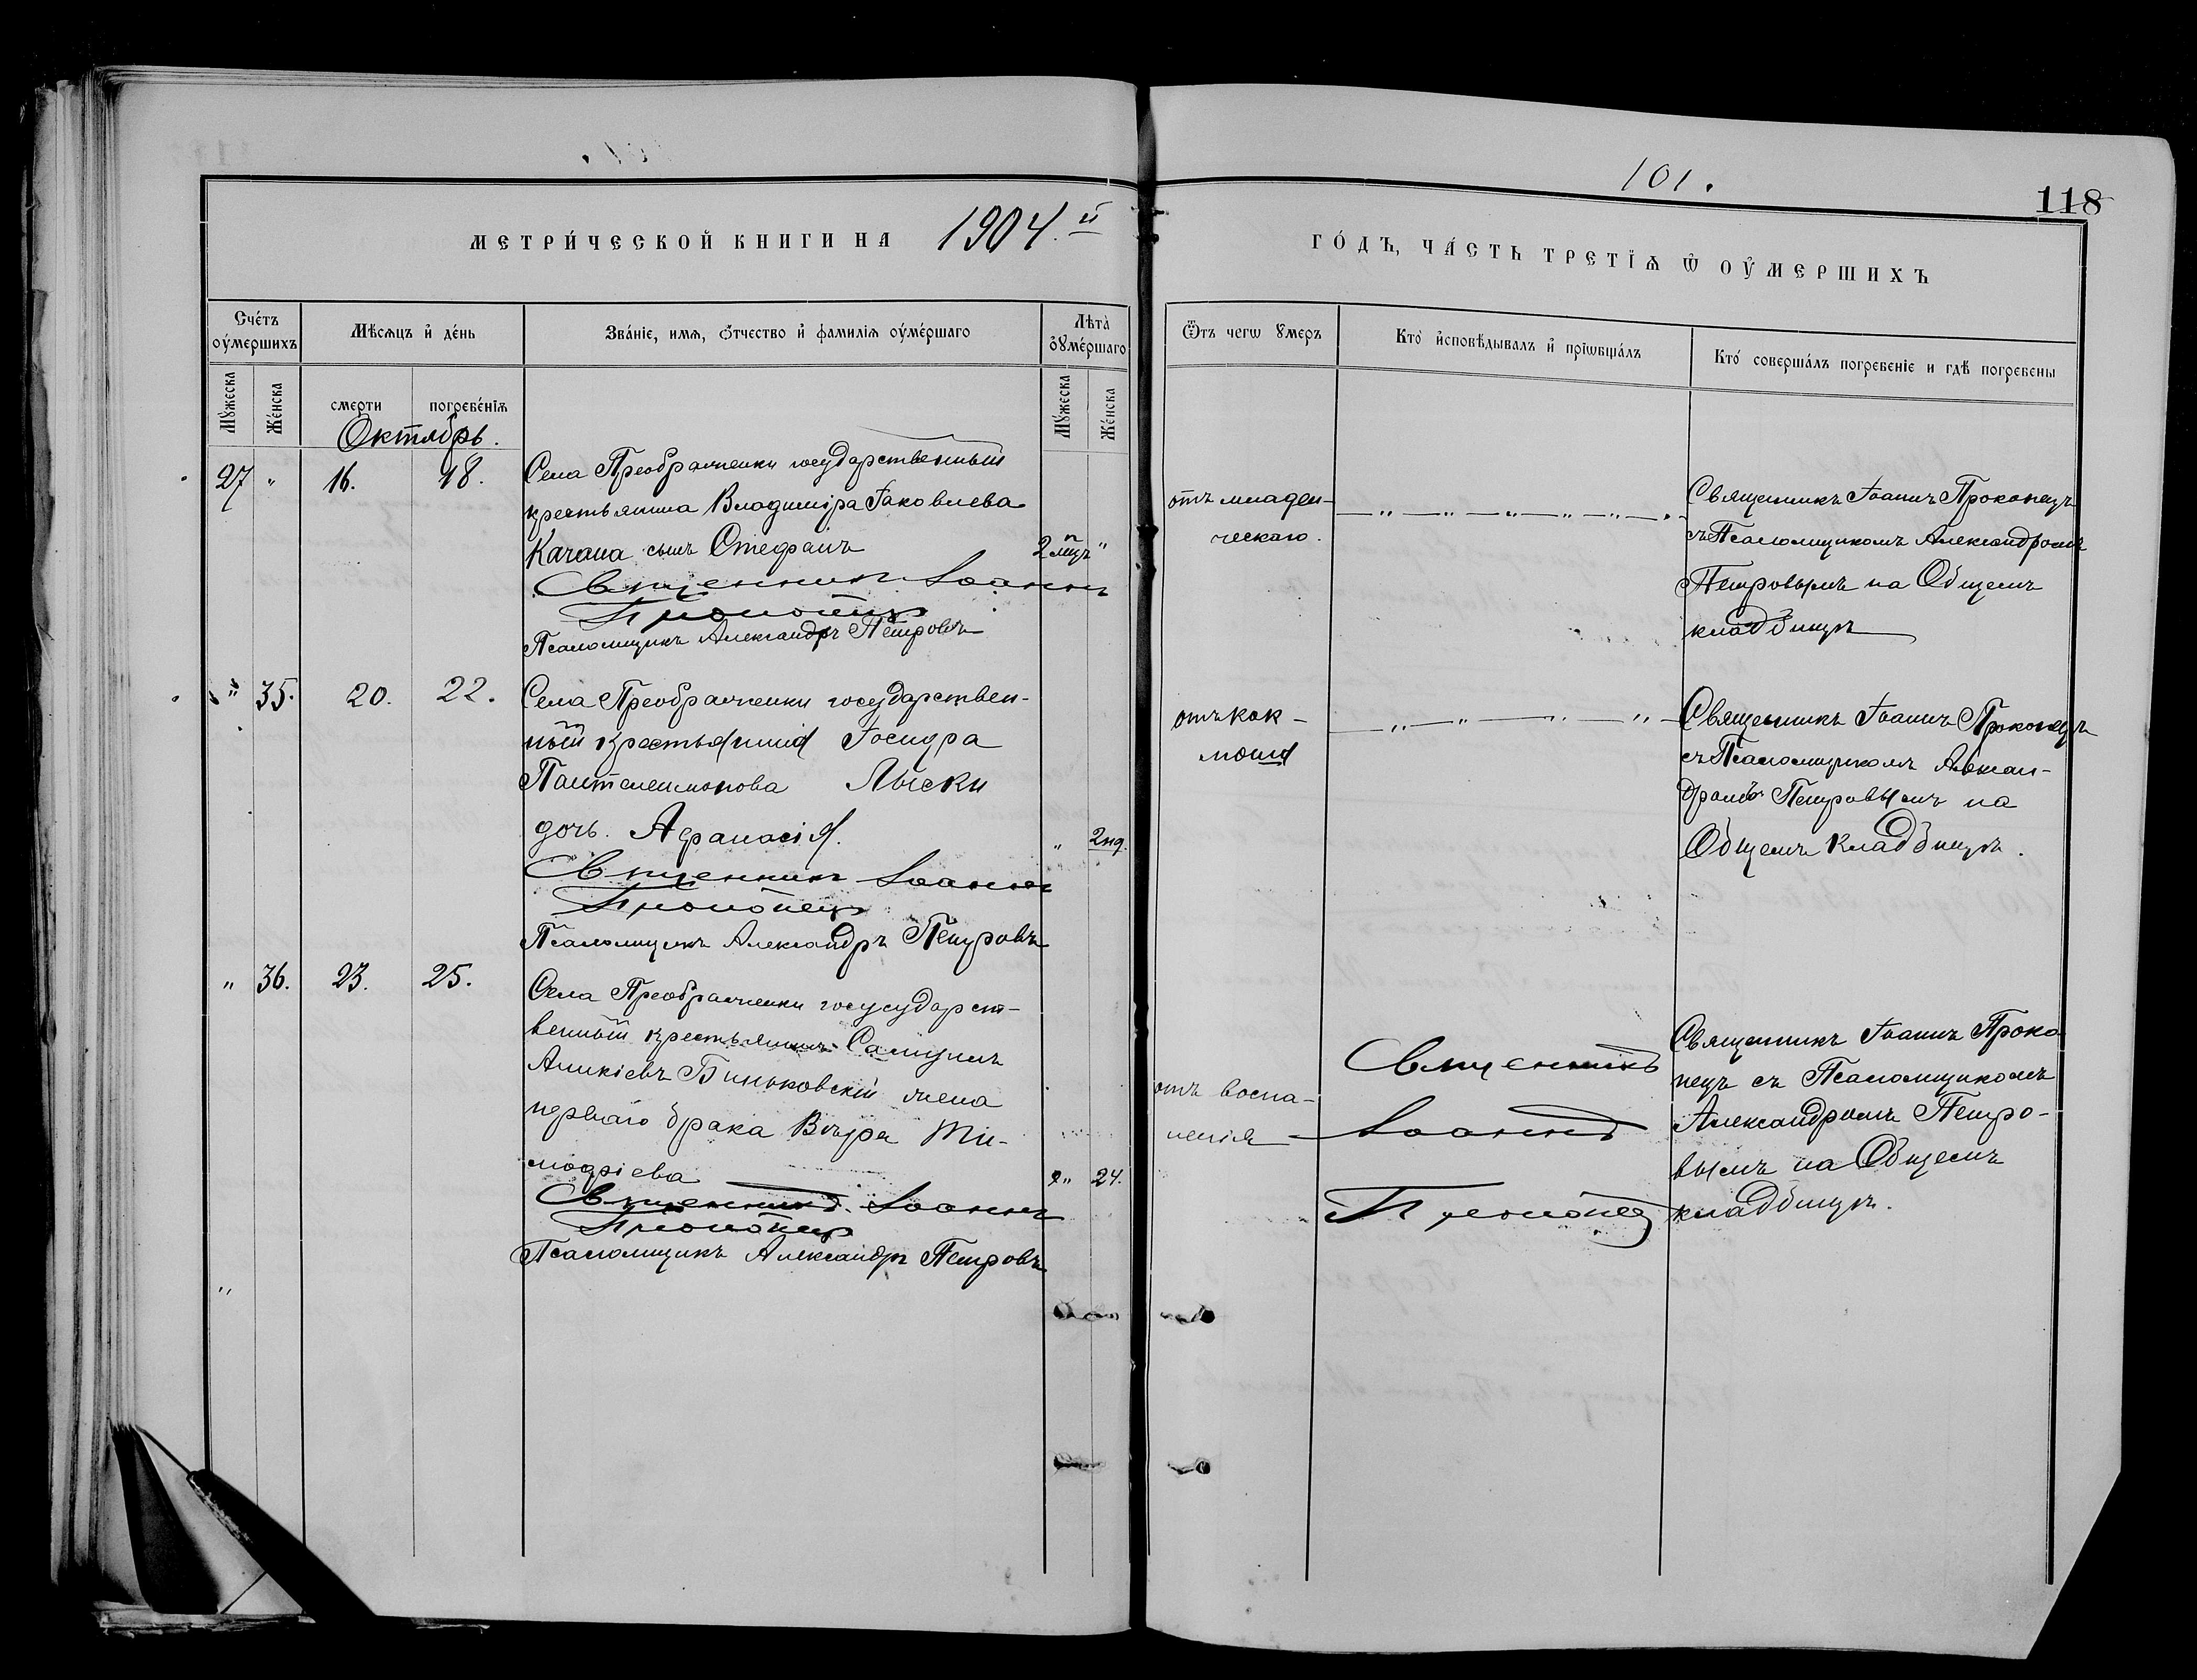 101.
118
МЕТРИ́ЧЕСКОЙ КНИГИ НА 1904.й
ГО́ДЪ, ЧА́СТЬ ТРЕТЇѦ Ѿ ОУ́МЕРШИХЪ
Сче́тъ оу́мершихъ
Мѣсѧцъ и҆ де́нь
Зва́нїе, имѧ, ѻ҆́тчество и҆ фамилїѧ оу́ме́ршаго
Лѣта̀ оу҆ме́ршаго
Ѿтъ чегѡ ꙋмеръ
Кто̀ и҆сповѣ́дывалъ и҆ прїѡбща́лъ
Кто́ соверша́лъ погребенїе и гдѣ̀ погребены
Мꙋ́жеска
Же́нска
смерти
погребе́нїѧ
Мꙋ́жеска
Же́нска
Октябрь.
27 " 16. 18.
Села Преображенки государственный
крестьянина Владиміра Іаковлева
Качана сынъ Стефанъ
2 мцъ "
Священникъ Іоаннъ
Прокопецъ
Псаломщикъ Александръ Петровъ
отъ младен-
ческаго.
— " — " — " — " — " —
Священникъ Іоаннъ Прокопецъ
съ Псаломщикомъ Александромъ
Петровымъ на Общемъ
кладбищѣ
" 35. 20. 22.
Села Преображенки государствен-
ный крестьянина Іосифа
Пантелеимонова Лыски
дочь. Афанасія.
" 2 нд.
Священникъ Іоаннъ
Прокопецъ
Псаломщикъ Александръ Петровъ
отъ кок-
люша
— " — " — " — " —
Священникъ Іоаннъ Прокопецъ
съ Псаломщикомъ Алексан-
дромъ Петровымъ на
Общемъ Кладбищѣ.
" 36. 23. 25.
Села Преображенки госусударст-
венный крестьянинъ Самуилъ
Аникіевъ Биньковскій жена
перваго брака Вѣра Ти-
мофіева
" 24.
Священникъ Іоаннъ
Прокопецъ
Псаломщикъ Александръ Петровъ
отъ воспа-
ленія
Священникъ
Іоаннъ
Прокопецъ
Священникъ Іоаннъ Проко
пецъ съ Псаломщикомъ
Александромъ Петро-
вымъ на Общемъ
кладбищѣ.
"